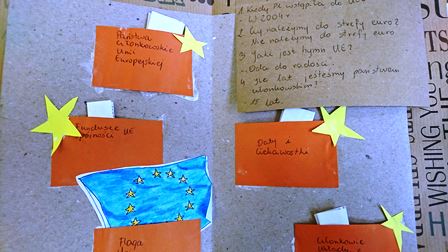 Państwa
członkowskie
Unii
Europejskiej
1. Kiedy PL wstąpiła do UE?
W 2004 r.
2. Czy należymy do strefy euro?
- Nie należymy do strefy euro
3. Jaki jest hymn UE?
- Oda do radości.
4. Ile lat jesteśmy państwem
członkowskim?
15 lat.
Fundusze UE
Daty i
Ciekawostki
Flaga
Członkowie
WISHING YOU